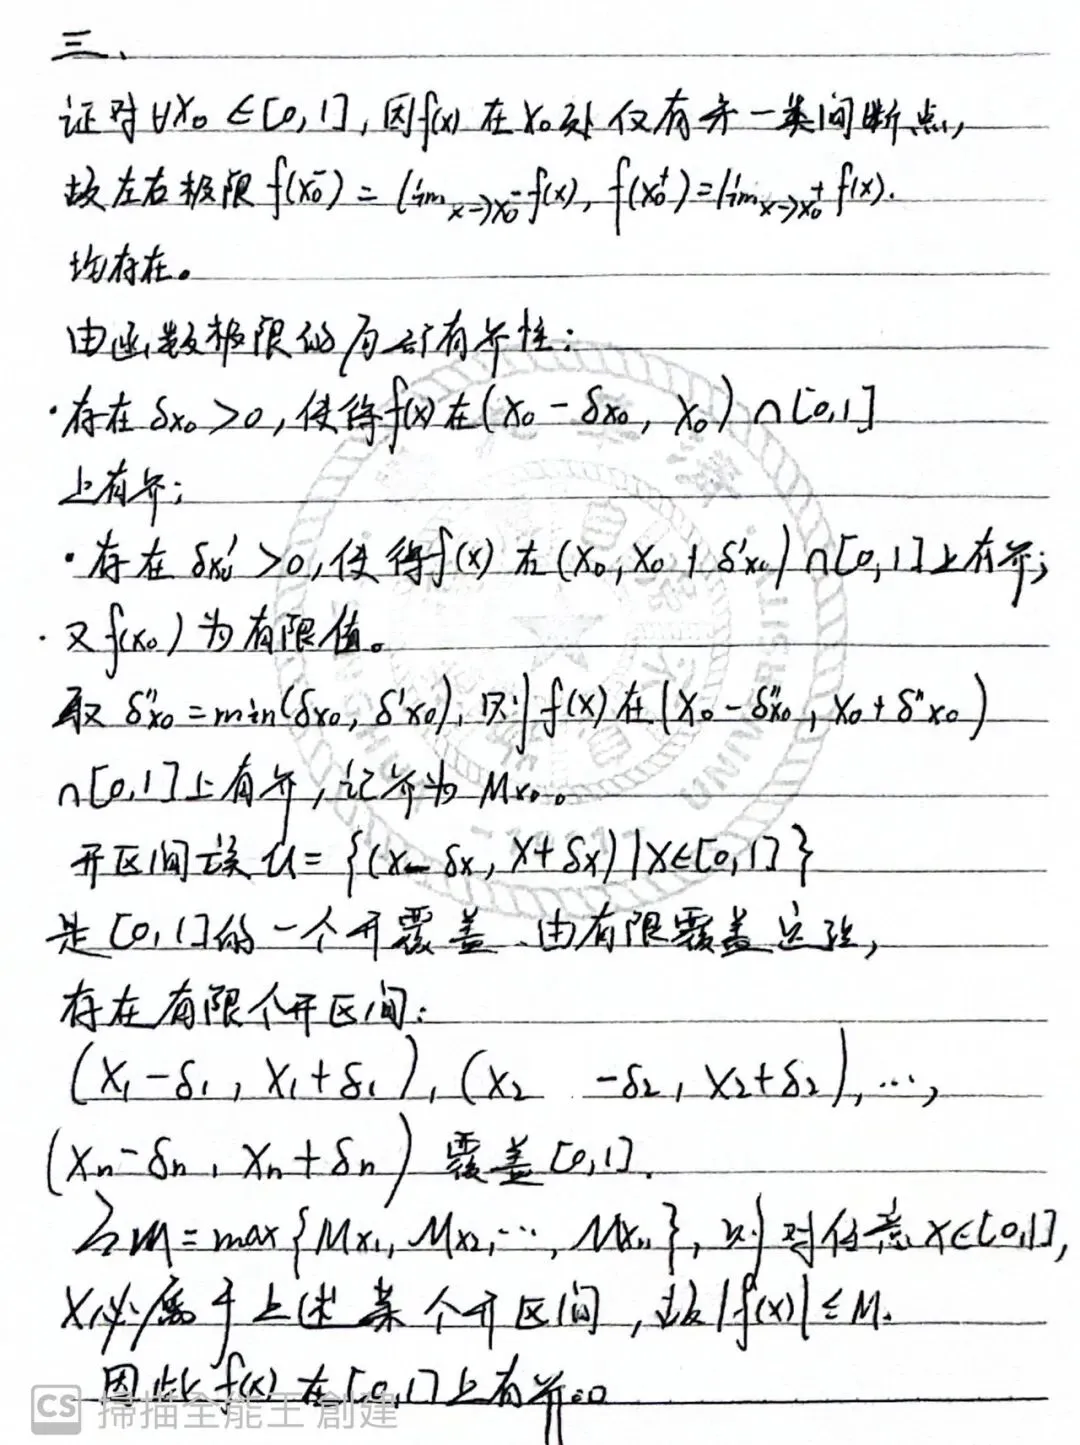 三、
证对∀x₀∈[0,1],因f(x)在x₀处仅有第一类间断点,
故左右极限f(x₀⁻)=lim_{x→x₀⁻}f(x),f(x₀⁺)=lim_{x→x₀⁺}f(x).
均存在。
由函数极限的局部有界性:
·存在δx₀>0,使得f(x)在(x₀-δx₀,x₀)∩[0,1]
上有界;
·存在δx₀'>0,使得f(x)在(x₀,x₀+δ'x₀)∩[0,1]上有界;
·又f(x₀)为有限值。
取δ''x₀=min(δx₀,δ'x₀),则f(x)在(x₀-δ''x₀,x₀+δ''x₀)
∩[0,1]上有界,记界为Mx₀。
开区间族U={(x-δx,x+δx)|x∈[0,1]}
是[0,1]的一个开覆盖.由有限覆盖定理,
存在有限个开区间:
(x₁-δ₁,x₁+δ₁),(x₂ -δ₂,x₂+δ₂),…,
(xₙ-δₙ,xₙ+δₙ)覆盖[0,1].
令M=max{Mx₁,Mx₂,…,Mxₙ},则对任意x∈[0,1],
x必属于上述某个开区间,故|f(x)|≤M.
因此f(x)在[0,1]上有界。
CS 掃描全能王 創建